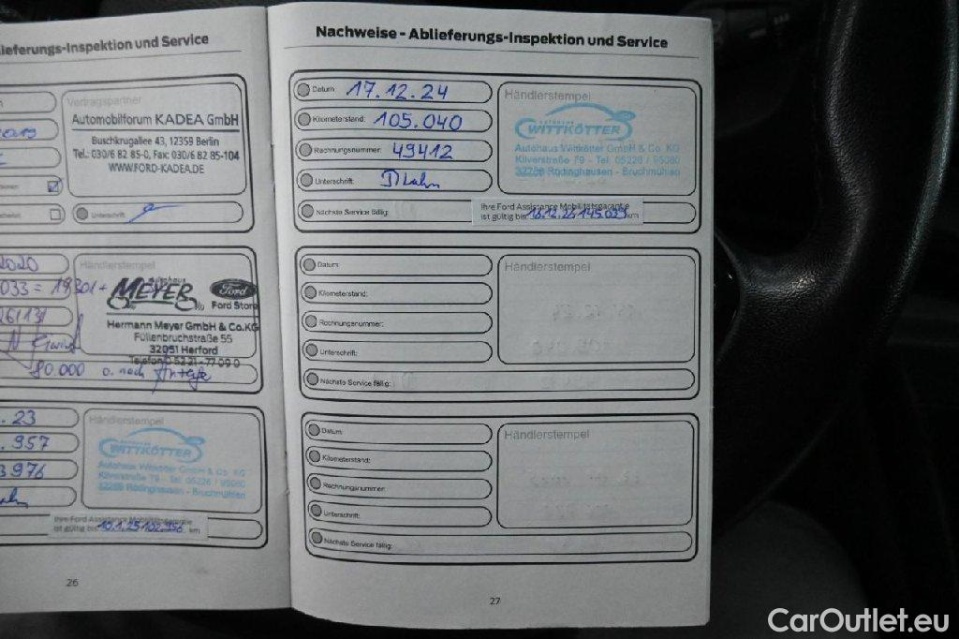 Inspektion und Service
Vertragspartner
Automobilforum KADEA GmbH
Buschkrugallee 43, 12359 Berlin
Tel.: 030/6 82 85-0, Fax: 030/6 82 85-104
WWW.FORD-KADEA.DE
Unterschrift:
Händlerstempel
MEYER
Ford
Ford Store
Hermann Meyer GmbH & Co.KG
Füllenbruchstraße 55
32051 Herford
Telefon 0 52 21 - 77 09 0
80 000
. 23
. 957
3976
Händlerstempel
AUTOHAUS
WITTKÖTTER
Autohaus Wittkötter GmbH & Co. KG
Kilverstraße 79 - Tel. 05226 / 95060
32289 Rödinghausen - Bruchmühlen
Ihre Ford Assistance Mobilitätsgarantie
ist gültig bis km
26
Nachweise - Ablieferungs-Inspektion und Service
Datum: 17.12.24
Kilometerstand: 105.040
Rechnungsnummer: 49412
Unterschrift:
Nächste Service fällig:
Händlerstempel
AUTOHAUS
WITTKÖTTER
Autohaus Wittkötter GmbH & Co. KG
Kilverstraße 79 - Tel. 05226 / 95060
32289 Rödinghausen - Bruchmühlen
Ihre Ford Assistance Mobilitätsgarantie
ist gültig bis km
Datum:
Kilometerstand:
Rechnungsnummer:
Unterschrift:
Nächste Service fällig:
Händlerstempel
Datum:
Kilometerstand:
Rechnungsnummer:
Unterschrift:
Nächste Service fällig:
Händlerstempel
27
CarOutlet.eu